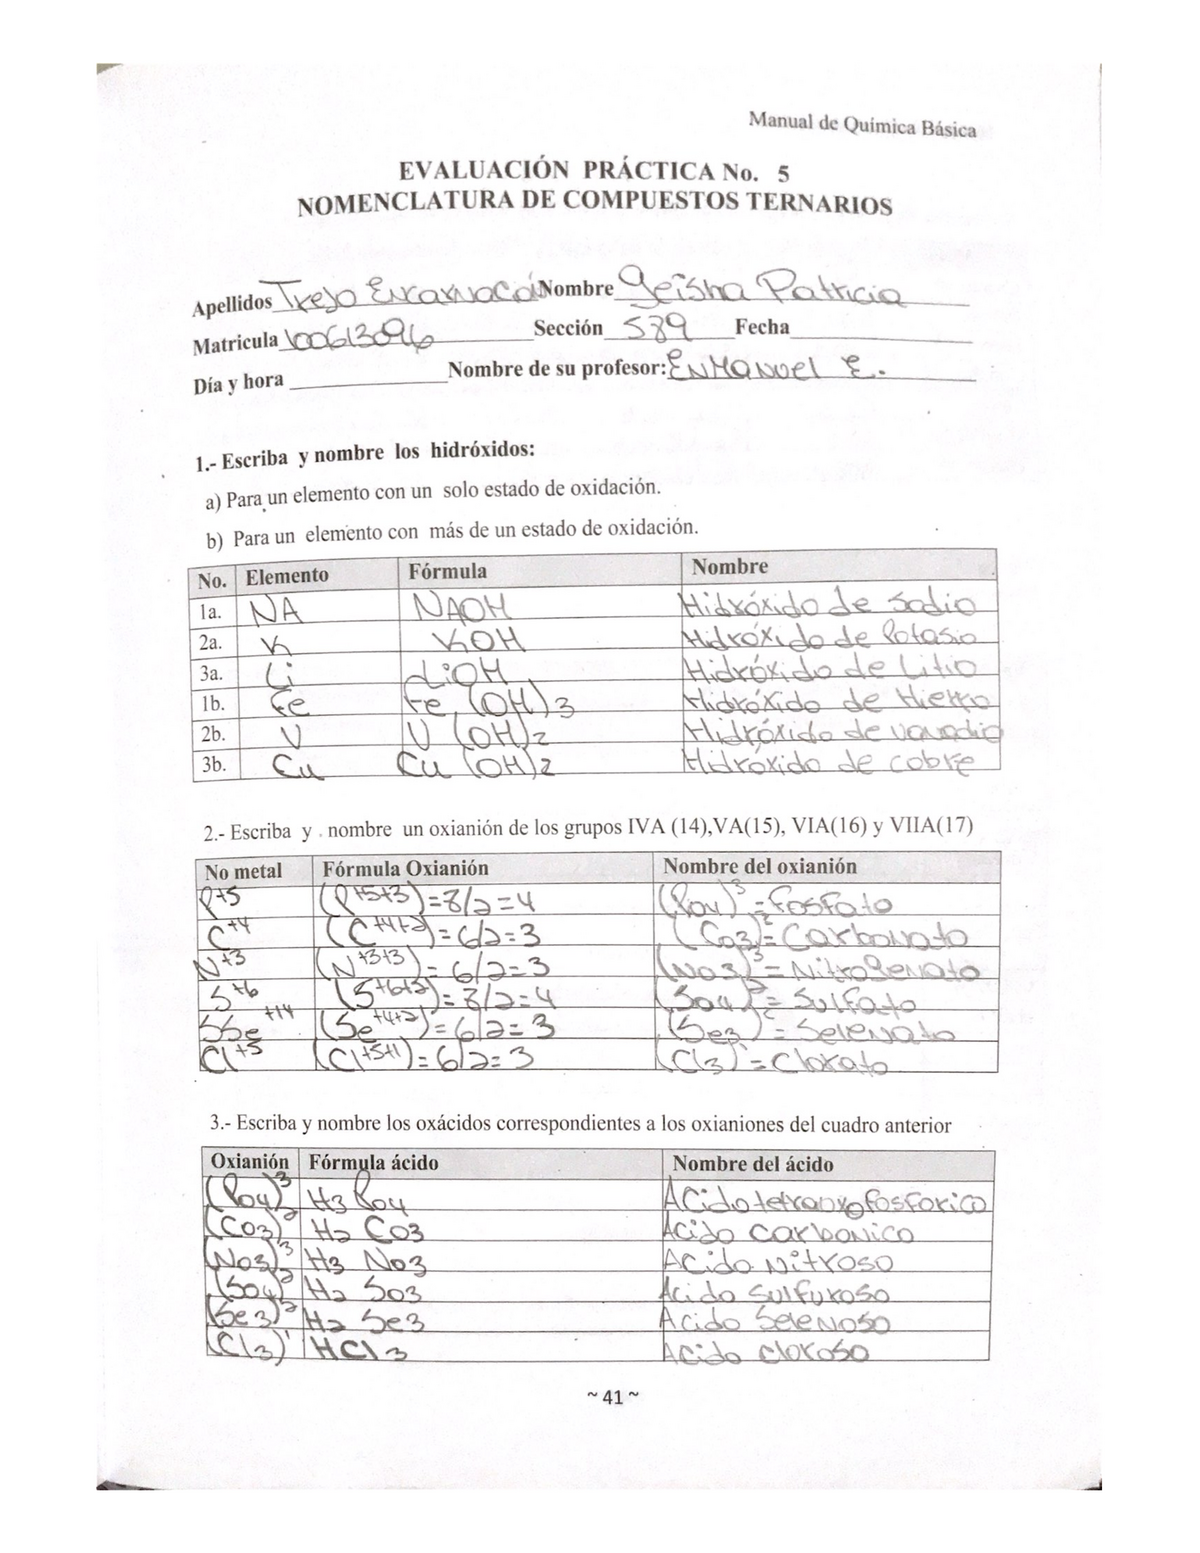 Manual de Química Básica
EVALUACIÓN PRÁCTICA No. 5
NOMENCLATURA DE COMPUESTOS TERNARIOS
Apellidos Trejo Encarnación Nombre Geisha Patricia
Matricula 100613096 Sección 589 Fecha
Día y hora Nombre de su profesor: ENMANUEl E.
1.- Escriba y nombre los hidróxidos:
a) Para un elemento con un solo estado de oxidación.
b) Para un elemento con más de un estado de oxidación.
No. Elemento Fórmula Nombre
1a. NA NAOH Hidróxido de Sodio
2a. K KOH Hidróxido de Potasio
3a. Li LiOH Hidróxido de Litio
1b. Fe Fe (OH)3 Hidróxido de Hierro
2b. V V (OH)2 Hidróxido de vanadio
3b. Cu Cu (OH)2 Hidróxido de cobre
2.- Escriba y nombre un oxianión de los grupos IVA (14),VA(15), VIA(16) y VIIA(17)
No metal Fórmula Oxianión Nombre del oxianión
P+5 (P+5+3)=8/2=4 (Po4)3 = Fosfato
C+4 (C+4+2)=6/2=3 (Co3)2 = Carbonato
N+3 (N+3+3)=6/2=3 (No3)3 = Nitrogenato
S+6 (S+6+2)=8/2=4 (So4)2 = Sulfato
SSe+14 (Se+4+2)=6/2=3 (Se3)2 = Selenato
Cl+5 (Cl+5+1)=6/2=3 (Cl3)1 = Clorato
3.- Escriba y nombre los oxácidos correspondientes a los oxianiones del cuadro anterior
Oxianión Fórmula ácido Nombre del ácido
(Po4)3 H3 Po4 Acido tetraoxofosforico
(Co3)2 H2 Co3 Acido carbonico
(No3)3 H3 No3 Acido Nitroso
(So4)2 H2 So3 Acido Sulfuroso
(Se3)2 H2 Se3 Acido Selenoso
(Cl3)1 HCl3 Acido cloroso
~ 41 ~